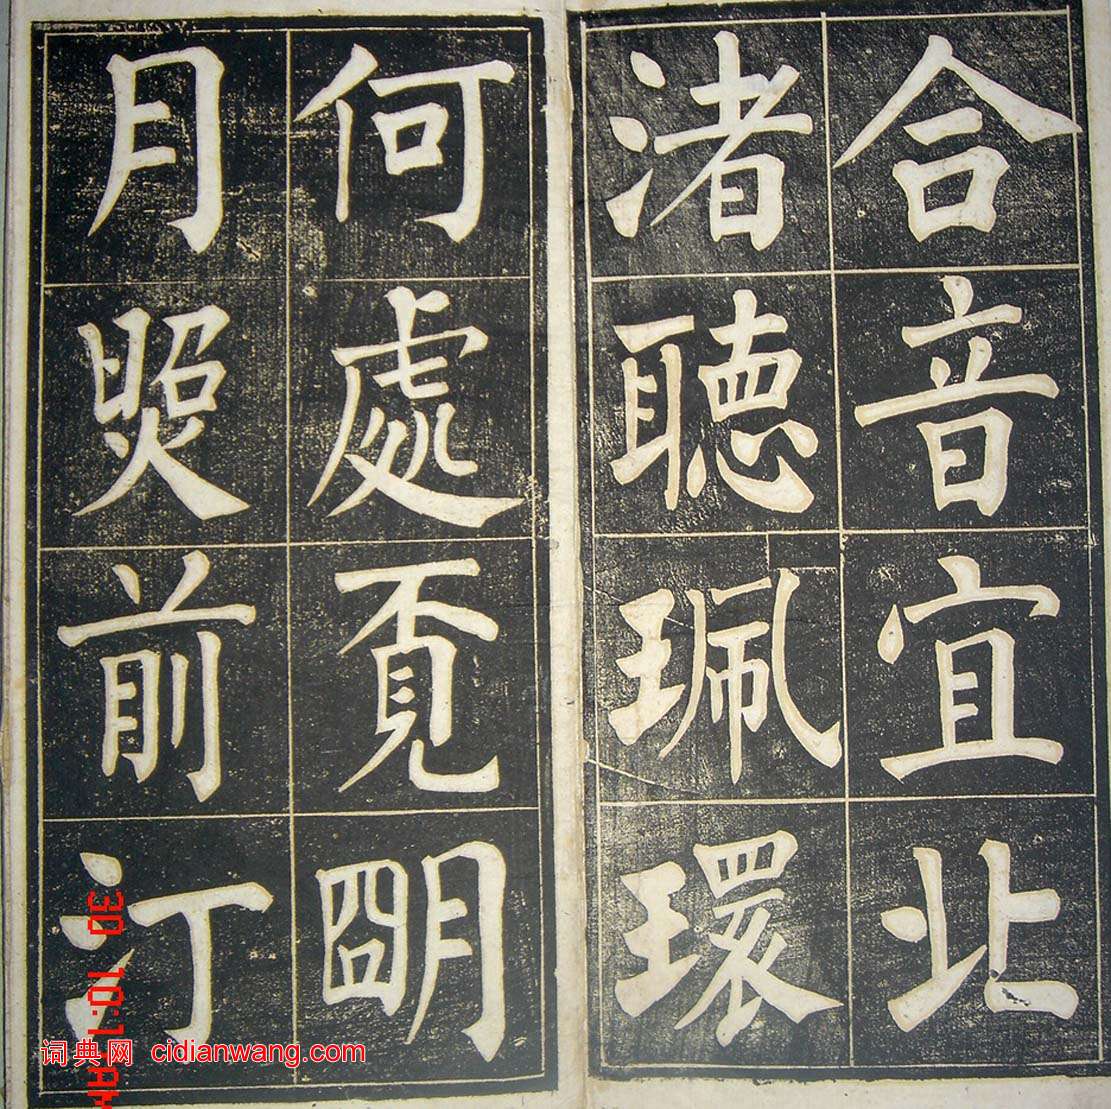 合音宜北
渚聽珮環
何處覔朙
月照前汀
词典网 cidianwang.com